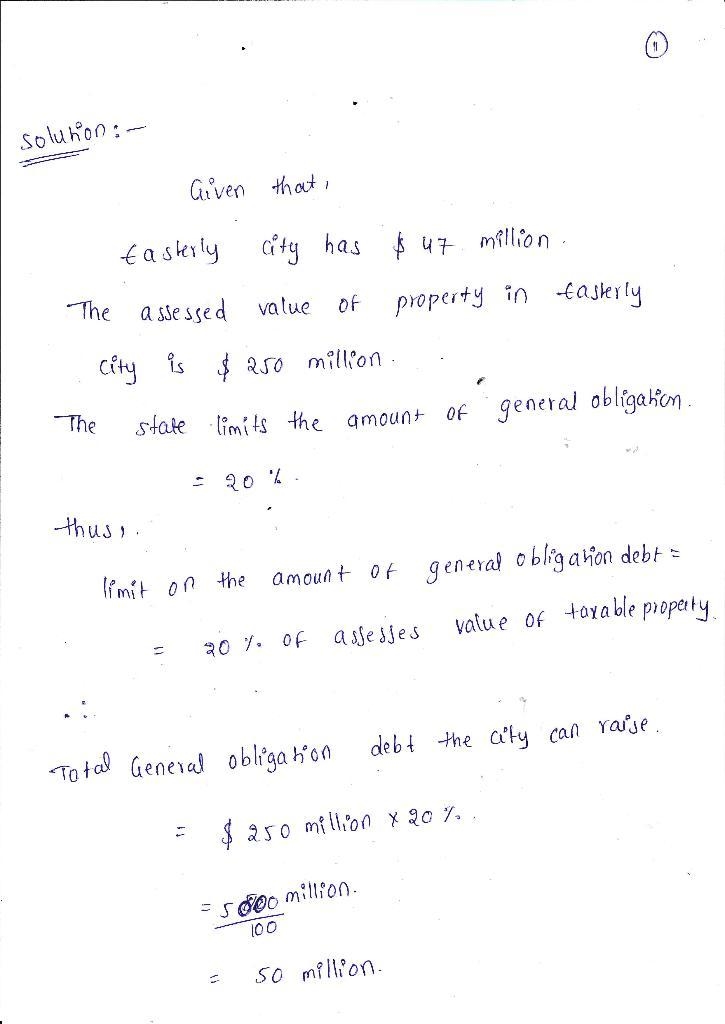 11
Solution :-
Given that,
Easterly city has $ 47 million.
The assessed value of property in Easterly
city is $ 250 million.
The state limits the amount of general obligation.
= 20 %.
thus,.
limit on the amount of general obligation debt =
= 20 % of assesses value of taxable property.
∴
Total General obligation debt the city can raise.
= $ 250 million x 20 %.
= 5000 million.
100
= 50 million.